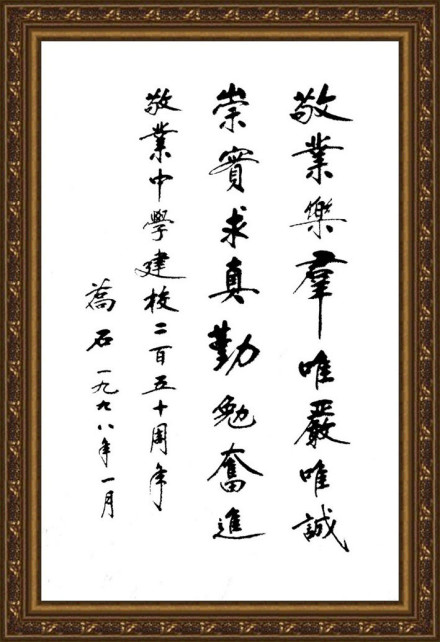 敬業樂羣唯嚴唯誠
崇實求真勤勉奮進
敬業中學建校二百五十周年
喬石一九九八年一月